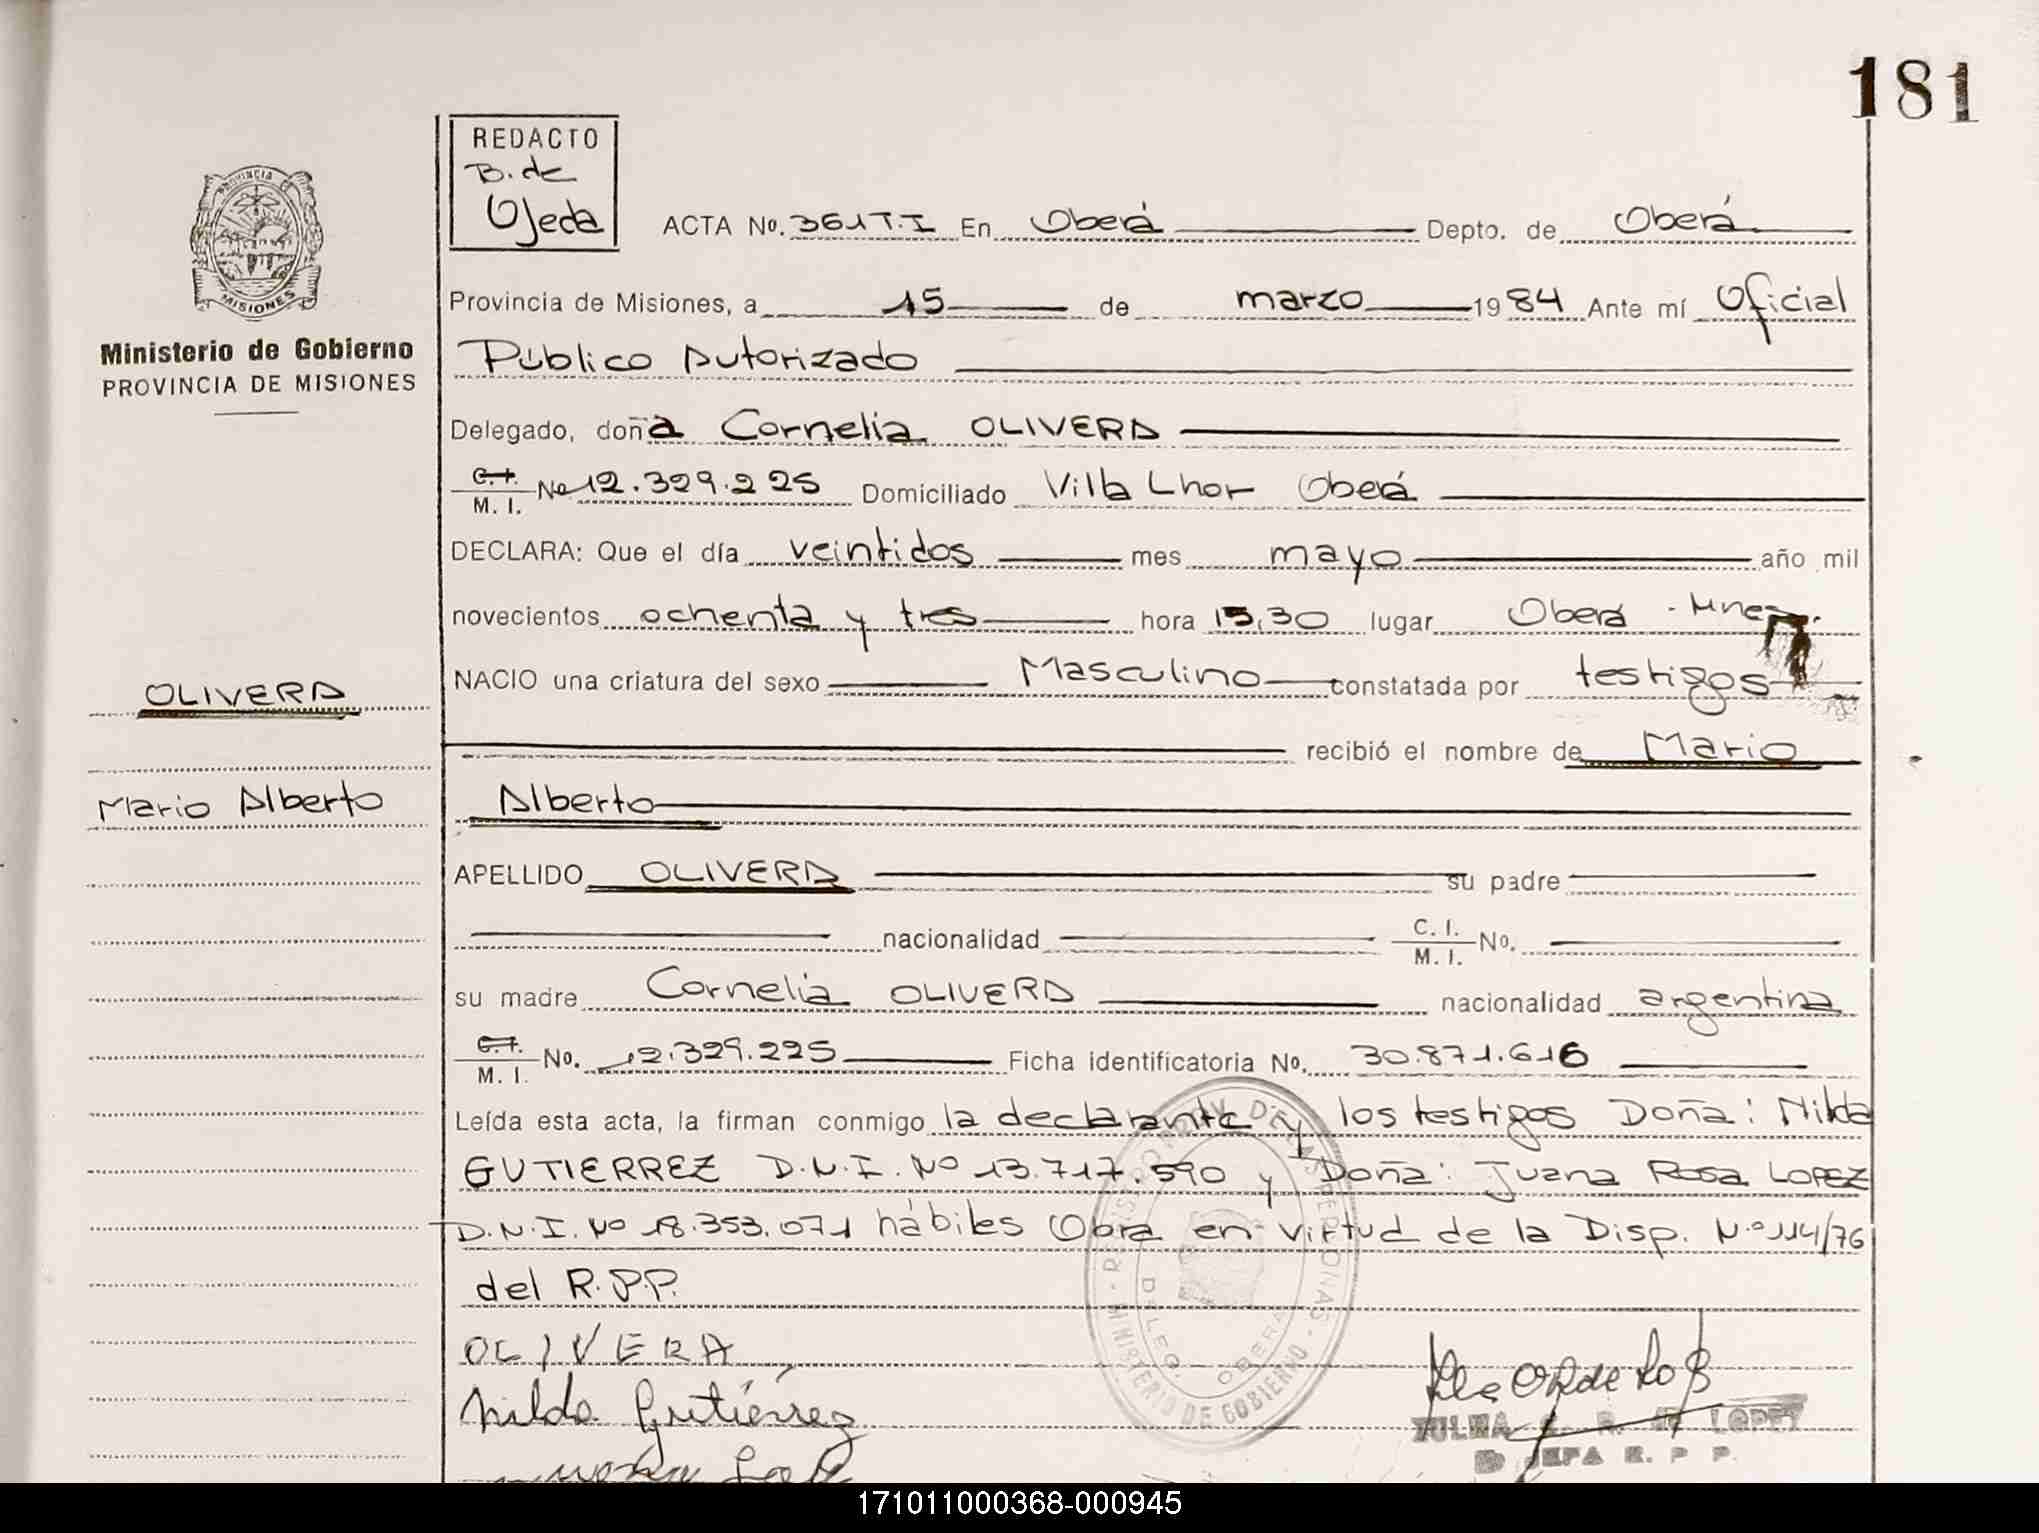 181
REDACTO
B. de
Ojeda
PROVINCIA DE
MISIONES
Ministerio de Gobierno
PROVINCIA DE MISIONES
ACTA No. 361 T.I En Oberá Depto. de Oberá
Provincia de Misiones, a 15 de marzo 1984 Ante mí Oficial
Público Autorizado
Delegado, doña Cornelia OLIVERA
C.I. M. I. No 12.329.225 Domiciliado Villa Lhor Oberá
DECLARA: Que el día veintidos mes mayo año mil
novecientos ochenta y tres hora 15,30 lugar Oberá - Mnes.
NACIO una criatura del sexo Masculino constatada por testigos
recibió el nombre de Mario
Alberto
OLIVERA
Mario Alberto
APELLIDO OLIVERA su padre
nacionalidad C. I. M. I. No.
su madre Cornelia OLIVERA nacionalidad argentina
C.I. M. I. No. 12.329.225 Ficha identificatoria No. 30.871.616
Leída esta acta, la firman conmigo la declarante y los testigos Doña: Nilda
GUTIERREZ D.N.I. No 13.717.590 y Doña: Juana Rosa LOPEZ
D.N.I. No 18.353.071 hábiles Obra en virtud de la Disp. N.º 114/76
del R.P.P.
OLIVERA
Nilda Gutiérrez
DE LAS PERSONAS
MINISTERIO DE GOBIERNO
DELEG. OBERA
ZULMA LOPEZ
JEFA R. P. P.
171011000368-000945